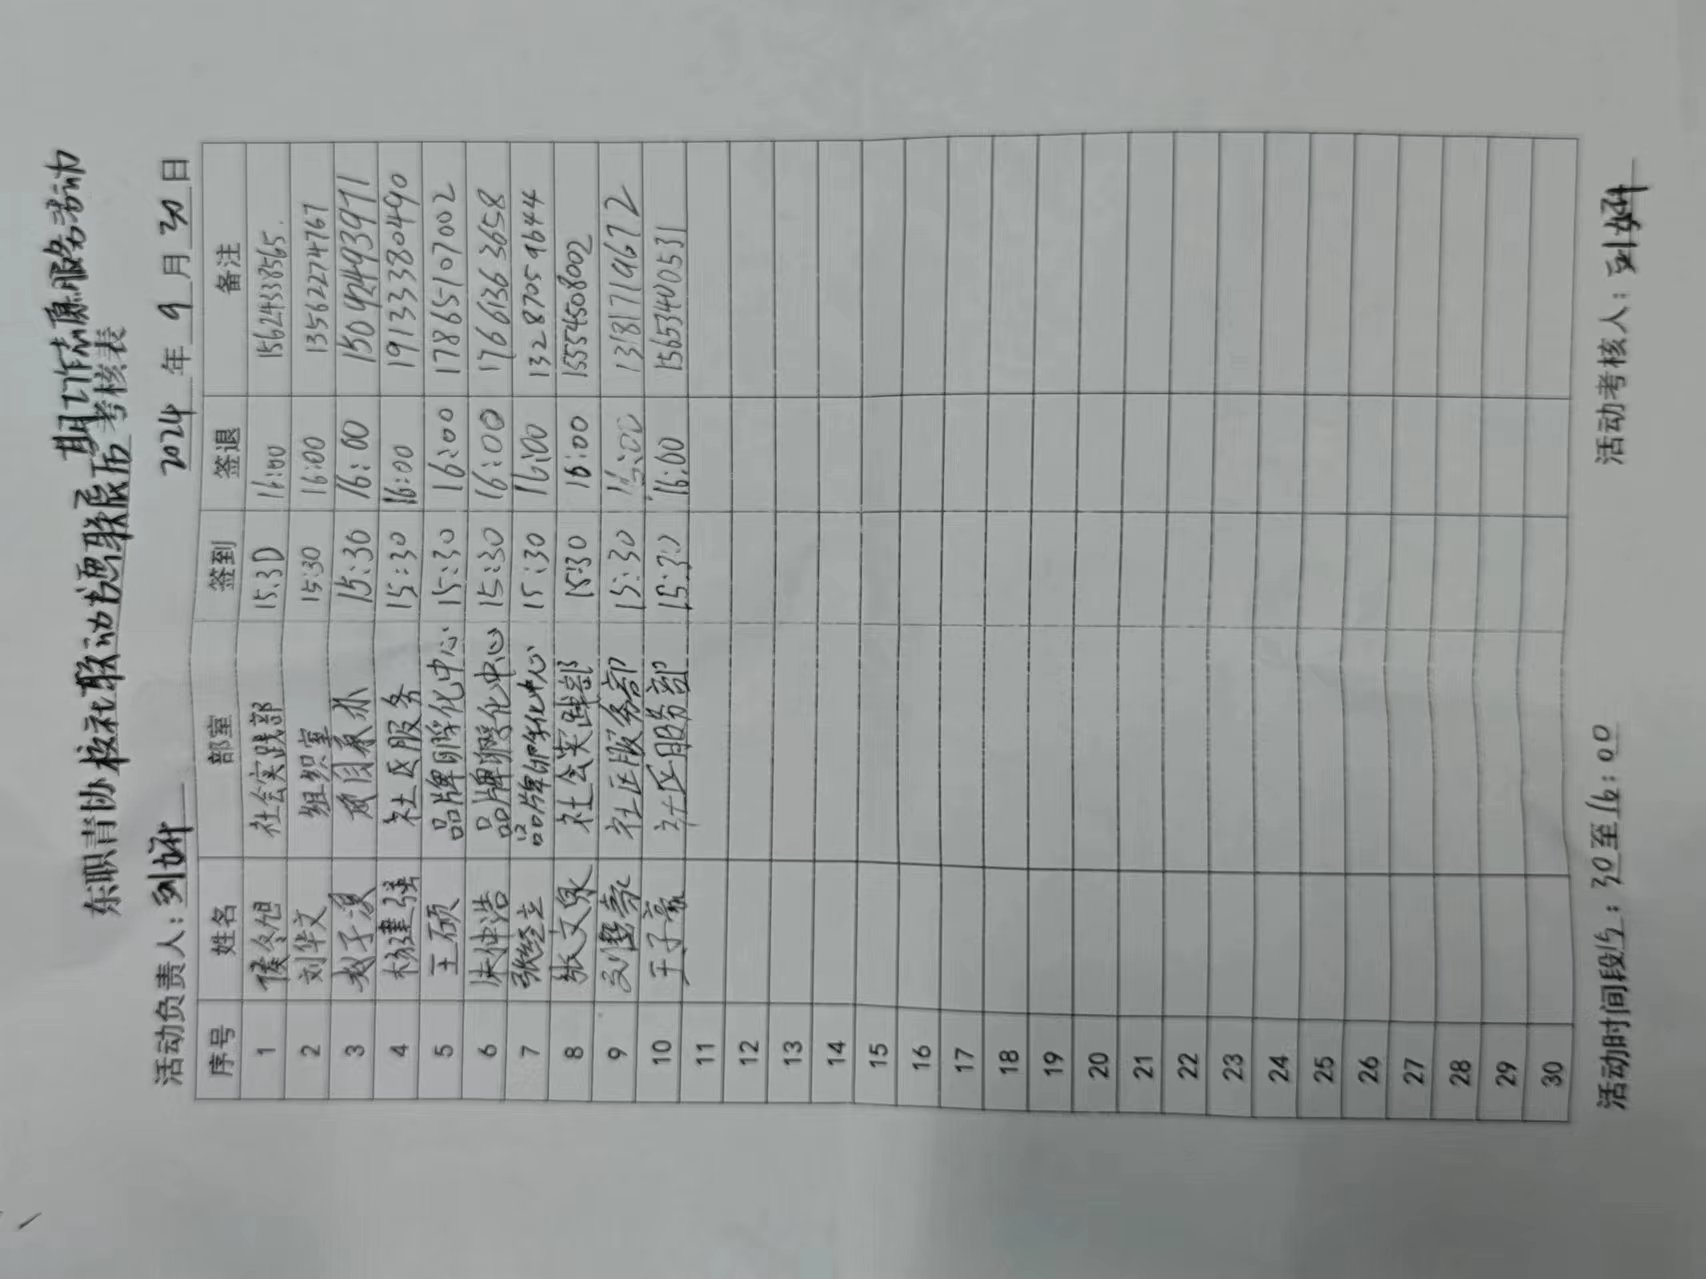 期工作志愿服务活动
东职青协校社联动书画联展历考核表
活动负责人：刘妍 2024年9月30日
序号 姓名 部室 签到 签退 备注
1 社会实践部 15:30 16:00 15624338565
2 刘华文 组织室 15:30 16:00 13562274767
3 15:30 16:00 15092493971
4 杨建强 社区服务 15:30 16:00 19133380490
5 王硕 品牌孵化中心 15:30 16:00 17865107002
6 朱仲浩 品牌孵化中心 15:30 16:00 17661363658
7 张经立 品牌孵化中心 15:30 16:00 13287059644
8 张文泉 社会实践部 15:30 16:00 15554508002
9 社区服务部 15:30 16:00 13181719672
10 王子豪 社区服务部 15:30 16:00 15653400531
11
12
13
14
15
16
17
18
19
20
21
22
23
24
25
26
27
28
29
30
活动时间段15：30至16：00 活动考核人：刘妍